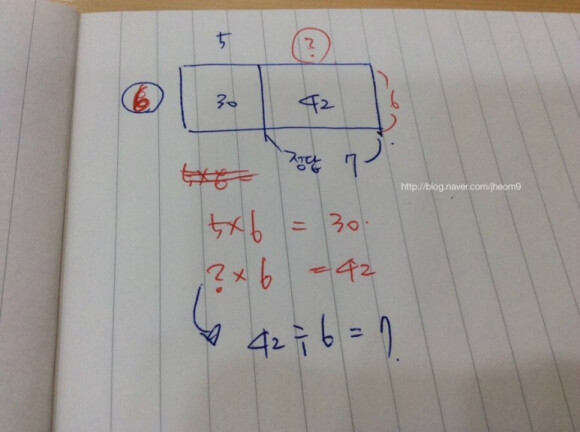 5 ?
6 30 42 6
정답 7
http://blog.naver.com/jheom9
5×6 =
5×6 = 30.
?×6 = 42
42÷6 = 7.